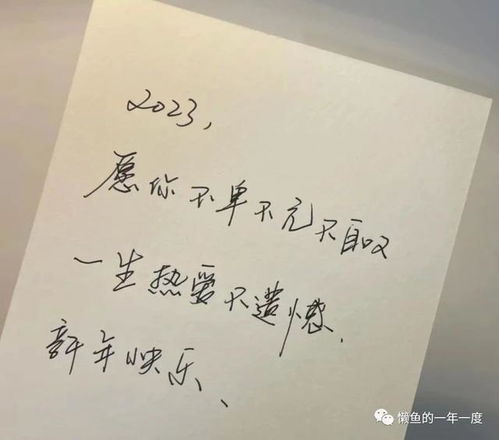 2023,
愿你不卑不亢不自叹
一生热爱不遗憾.
新年快乐、
懒鱼的一年一度